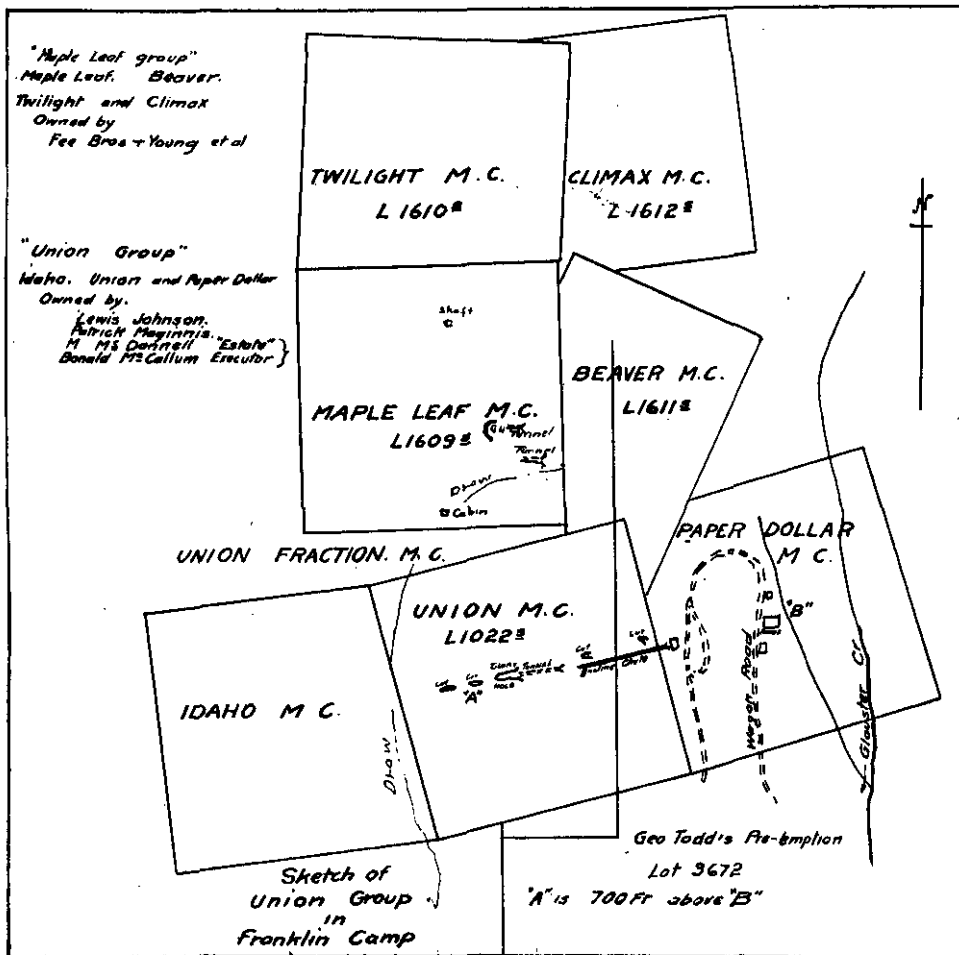 "Maple Leaf group"
Maple Leaf. Beaver.
Twilight and Climax
Owned by
Fee Bros + Young et al
"Union Group"
Idaho. Union and Paper Dollar
Owned by.
Lewis Johnson.
Patrick Maginnis.
M Mc Donnell "Estate"
Donald McCallum Executor
TWILIGHT M.C.
L 1610s
CLIMAX M.C.
L 1612s
N
Shaft
MAPLE LEAF M.C.
L1609s
Tunnel
Tunnel
Draw
Cabin
BEAVER M.C.
L1611s
UNION FRACTION. M.C.
PAPER DOLLAR
M C.
"B"
UNION M.C.
L1022s
Cut
Cut
"A"
Glory
Hole
Tunnel
Cut
Cut
Chute
IDAHO M C.
Draw
Wagon Road
Glouster Cr
Geo Todd's Pre-emption
Lot 3672
"A" is 700 Ft above "B"
Sketch of
Union Group
in
Franklin Camp